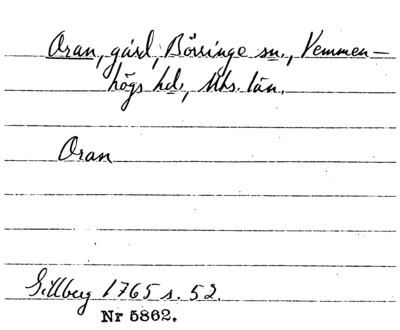 Oran, gård, Börringe sn., Vemmen-
högs hd., Mhs. län.
Oran
Gillberg 1765 s. 52.
Nr 5862.